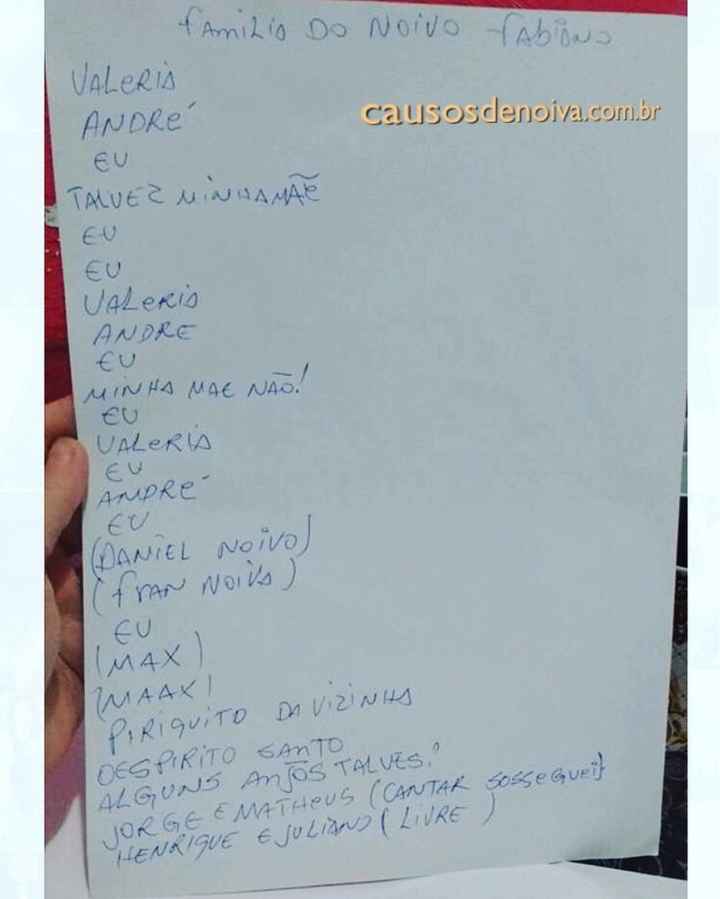 FAMILIA DO NOIVO FABIANO
causosdenoiva.com.br
VALERIA
ANDRÉ
EU
TALVEZ MINHA MÃE
EU
EU
VALERIA
ANDRE
EU
MINHA MAE NÃO!
EU
VALERIA
EU
ANDRÉ
EU
(DANIEL NOIVO)
(FRAN NOIVA)
EU
(MAX)
(MAAX)
PIRIQUITO DA VIZINHA
OESPIRITO SANTO
ALGUNS ANJOS TALVES!
JORGE E MATHEUS (CANTAR SOSSEGUEI)
HENRIQUE E JULIANO (LIVRE)